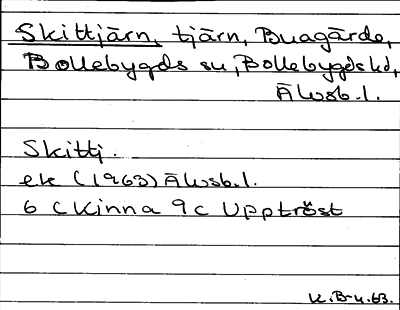 Skittjärn, tjärn, Buagärde,
Bollebygds sn, Bollebygds hd,
Älvsb. l.
Skittj.
ek (1963) Älvsb. l.
6 C Kinna 9 c Upptröst
K.B-n. 63.